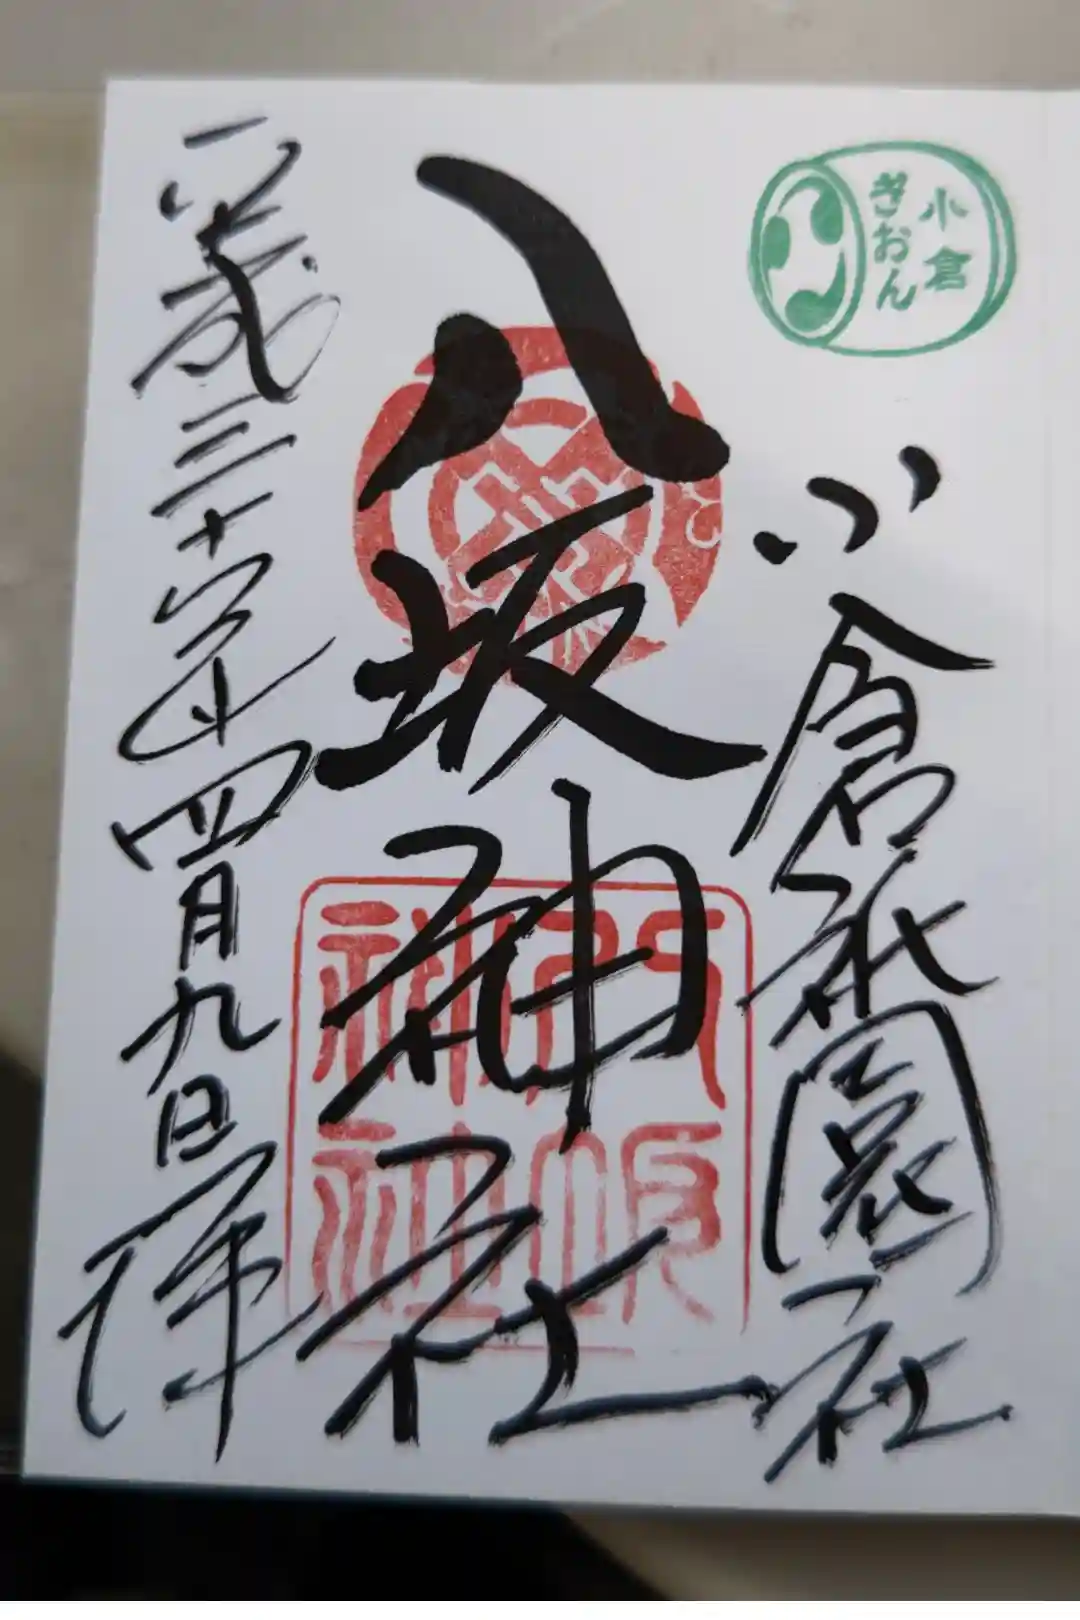 小倉
ぎおん
小倉祇園社
八坂神社
八坂
神社
平成三十年四月九日拝